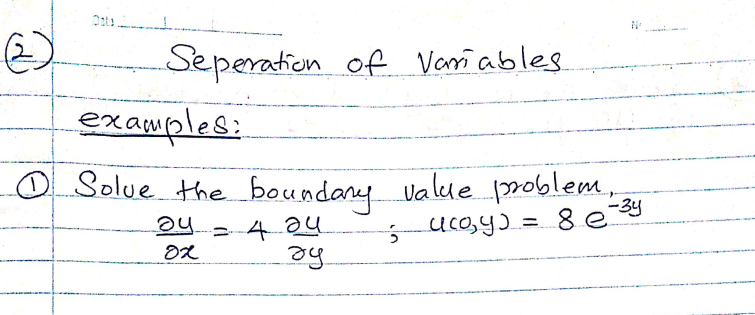 Date
No
② Seperation of Variables
examples:
① Solve the boundary value problem,
∂u/∂x = 4 ∂u/∂y ; u(0,y) = 8 e^{-3y}